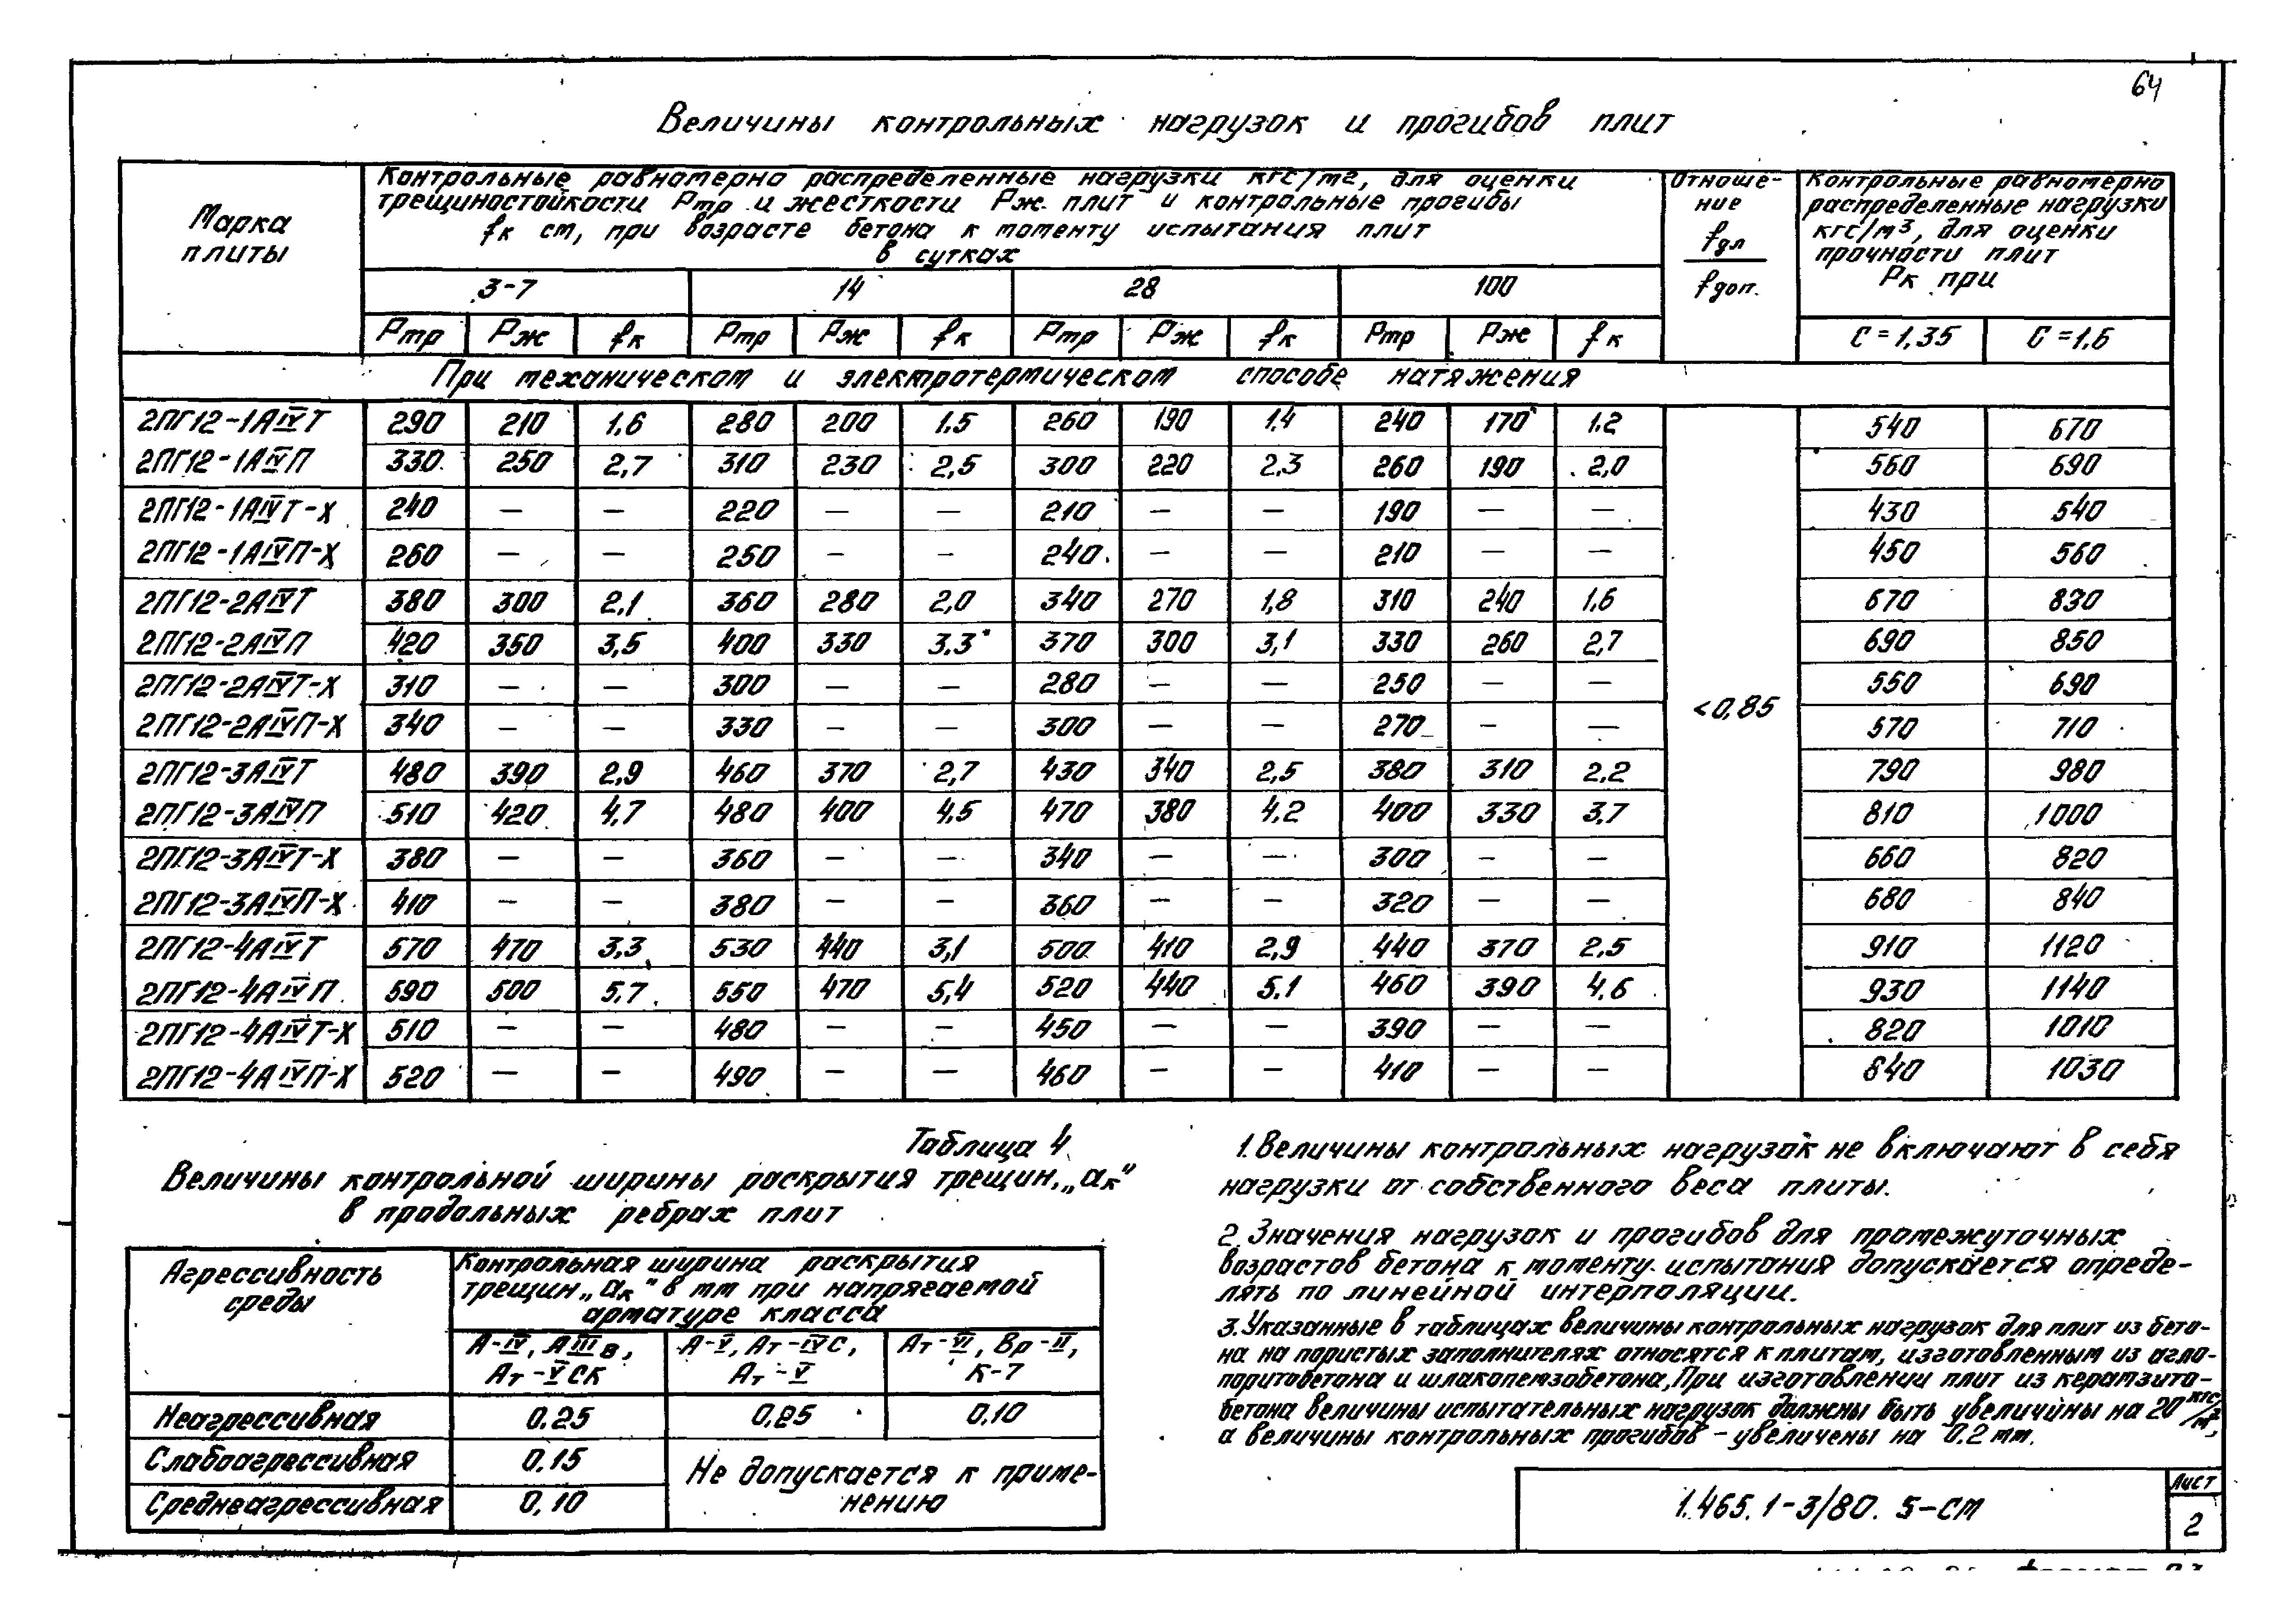 64
Величины контрольных нагрузок и прогибов плит
Марка плиты
Контрольные равномерно распределенные нагрузки кгс/м2, для оценки
трещиностойкости Ртр и жесткости Рж плит и контрольные прогибы
fк см, при возрасте бетона к моменту испытания плит
в сутках
Отноше-
ние
fдл
fдоп.
Контрольные равномерно
распределенные нагрузки
кгс/м³, для оценки
прочности плит
Рк при
3-7 14 28 100
Ртр Рж fк Ртр Рж fк Ртр Рж fк Ртр Рж fк С=1,35 С=1,6
При механическом и электротермическом способе натяжения
2ПГ12-1АIVТ 290 210 1,6 280 200 1,5 260 190 1,4 240 170 1,2 540 670
2ПГ12-1АIVП 330 250 2,7 310 230 2,5 300 220 2,3 260 190 2,0 560 690
2ПГ12-1АIVТ-Х 240 — — 220 — — 210 — — 190 — — 430 540
2ПГ12-1АIVП-Х 260 — — 250 — — 240 — — 210 — — 450 560
2ПГ12-2АIVТ 380 300 2,1 360 280 2,0 340 270 1,8 310 240 1,6 670 830
2ПГ12-2АIVП 420 350 3,5 400 330 3,3 370 300 3,1 330 260 2,7 690 850
2ПГ12-2АIVТ-Х 310 — — 300 — — 280 — — 250 — — 550 690
2ПГ12-2АIVП-Х 340 — — 330 — — 300 — — 270 — — 570 710
<0,85
2ПГ12-3АIVТ 480 390 2,9 460 370 2,7 430 340 2,5 380 310 2,2 790 980
2ПГ12-3АIVП 510 420 4,7 480 400 4,5 470 380 4,2 400 330 3,7 810 1000
2ПГ12-3АIVТ-Х 380 — — 360 — — 340 — — 300 — — 660 820
2ПГ12-3АIVП-Х 410 — — 380 — — 360 — — 320 — — 680 840
2ПГ12-4АIVТ 570 470 3,3 530 440 3,1 500 410 2,9 440 370 2,5 910 1120
2ПГ12-4АIVП 590 500 5,7 550 470 5,4 520 440 5,1 460 390 4,6 930 1140
2ПГ12-4АIVТ-Х 510 — — 480 — — 450 — — 390 — — 820 1010
2ПГ12-4АIVП-Х 520 — — 490 — — 460 — — 410 — — 840 1030
Таблица 4
Величины контрольной ширины раскрытия трещин „ак"
в продольных ребрах плит
Агрессивность
среды
Контрольная ширина раскрытия
трещин „ак" в мм при напрягаемой
арматуре класса
А-IV, АIIIв,
Ат-VСК
А-V, Ат-IVС,
Ат-V
Ат-VI, Вр-II,
К-7
Неагрессивная 0.25 0.25 0,10
Слабоагрессивная 0.15
Среднеагрессивная 0,10
Не допускается к приме-
нению
1. Величины контрольных нагрузок не включают в себя
нагрузки от собственного веса плиты.
2. Значения нагрузок и прогибов для промежуточных
возрастов бетона к моменту испытания допускается опреде-
лять по линейной интерполяции.
3. Указанные в таблицах величины контрольных нагрузок для плит из бето-
на на пористых заполнителях относятся к плитам, изготовленным из агло-
поритобетона и шлакопемзобетона, При изготовлении плит из керамзито-
бетона величины испытательных нагрузок должны быть увеличины на 20 кгс/м²,
а величины контрольных прогибов - увеличены на 0.2 мм.
1.465.1-3/80. 5-СМ
Лист
2